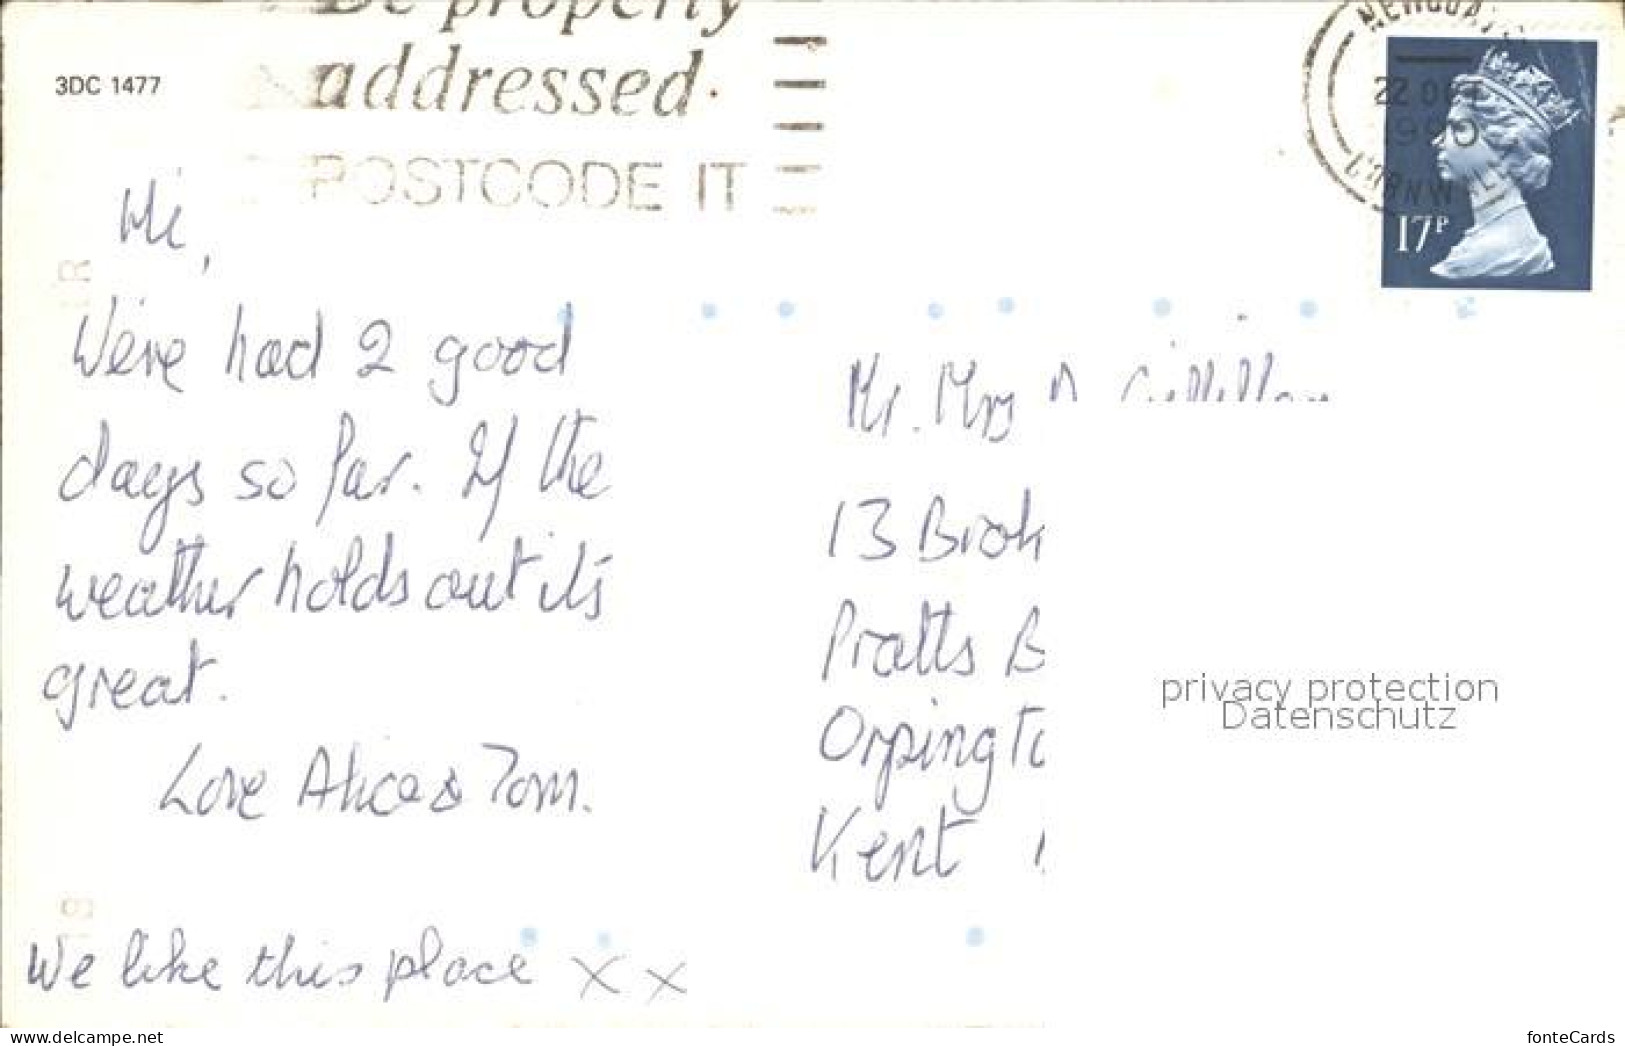 Be properly
addressed.
POSTCODE IT
3DC 1477
NEWQUAY
22 OC
1990
CORNWALL
17P
Hi,
We've had 2 good
days so far. If the
weather holds out it's
great.
Love Alice & Tom.
We like this place x x
Mr. Mrs
13
Pratts B
Orpingto
Kent
privacy protection
Datenschutz
www.delcampe.net
fonteCards